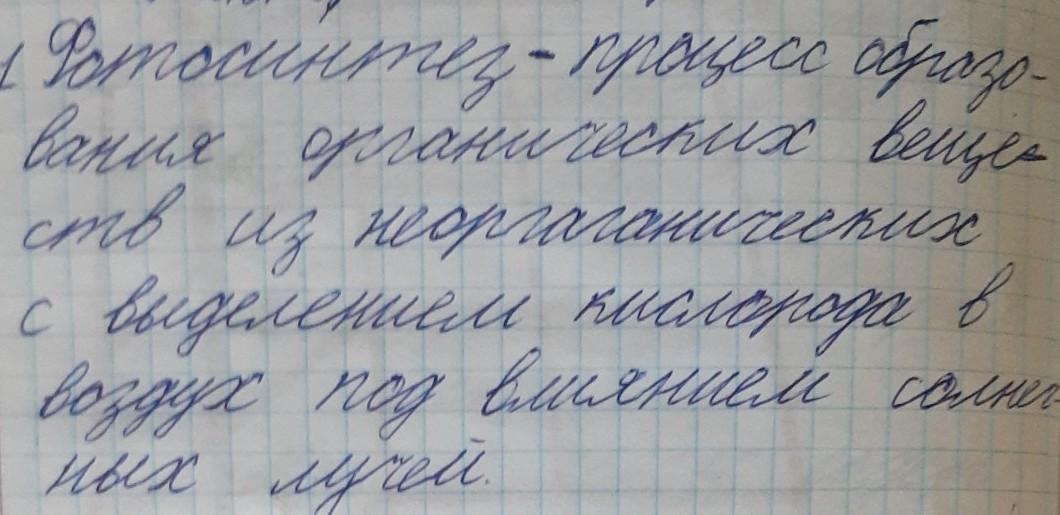 1 Фотосинтез - процесс образо-
вания органических веще-
ств из неоргаганических
с выделением кислорода в
воздух под влиянием солнеч-
ных лучей.